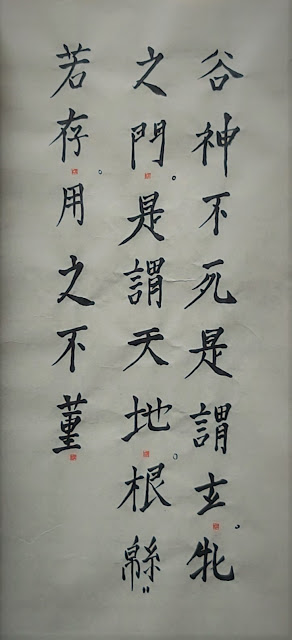 谷神不死是謂玄牝
之門是謂天地根緜〃
若存用之不菫